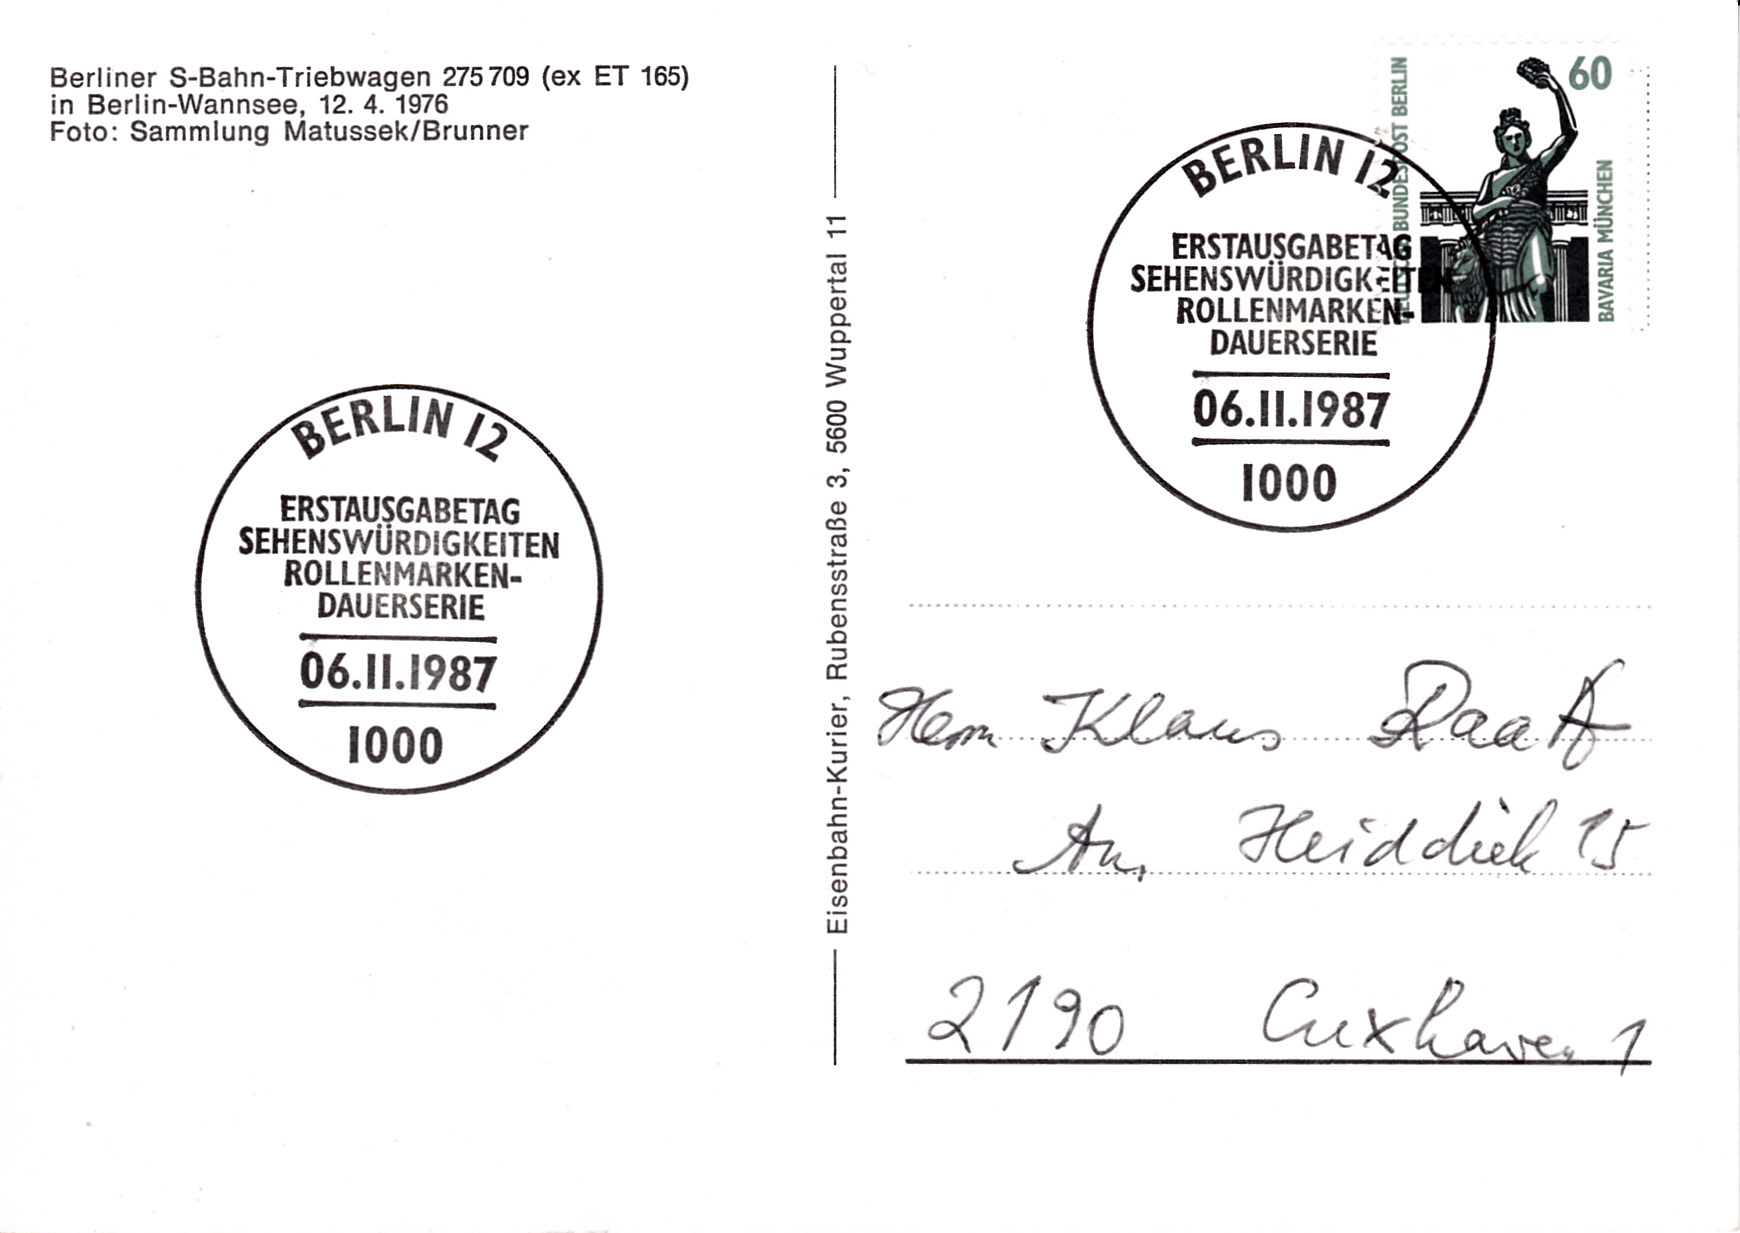 Berliner S-Bahn-Triebwagen 275 709 (ex ET 165)
in Berlin-Wannsee, 12. 4. 1976
Foto: Sammlung Matussek/Brunner
BERLIN 12
ERSTAUSGABETAG
SEHENSWÜRDIGKEITEN
ROLLENMARKEN-
DAUERSERIE
06.11.1987
1000
Eisenbahn-Kurier, Rubensstraße 3, 5600 Wuppertal 11
BERLIN 12
ERSTAUSGABETAG
SEHENSWÜRDIGKEITEN
ROLLENMARKEN-
DAUERSERIE
06.11.1987
1000
DEUTSCHE BUNDESPOST BERLIN
60
BAVARIA MÜNCHEN
Herrn Klaus
Am Heiddiek 15
2190 Cuxhaven 1